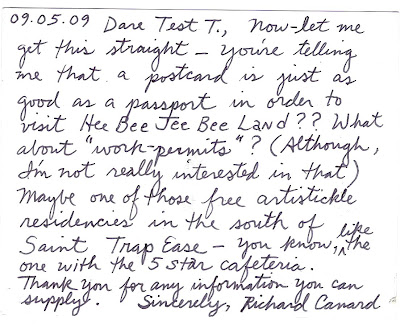 09.05.09 Dare Test T., Now-let me
get this straight - you're telling
me that a postcard is just as
good as a passport in order to
visit Hee Bee Jee Bee Land?? What
about "work-permits"? (Although,
I'm not really interested in that)
Maybe one of those free artistickle
residencies in the south of
Saint Trap Ease - you know, like the
one with the 5 star cafeteria.
Thank you for any information you can
supply. Sincerely, Richard Canard